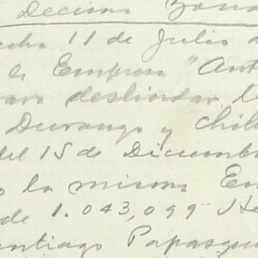 Decima Zona
echa 11 de Julio d
la Empresa "Ant
para deslindar te
Durango y Chih
del 15 de Diciembr
o la misma Em
de 1.043,099 He
antiago Papasqu